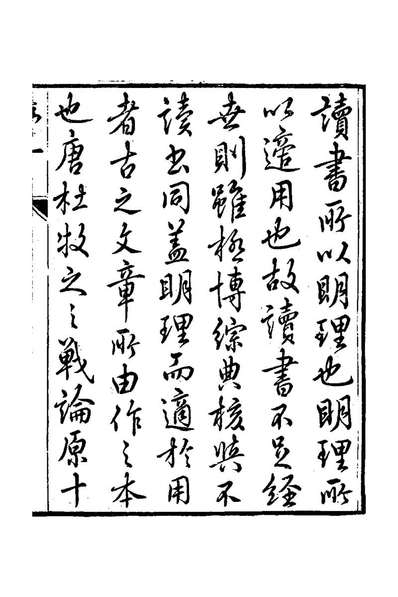 讀書所以明理也明理所
以適用也故讀書不足經
世則雖極博綜典核與不
讀書同蓋明理而適於用
者古之文章所由作之本
也唐杜牧之之戰論原十